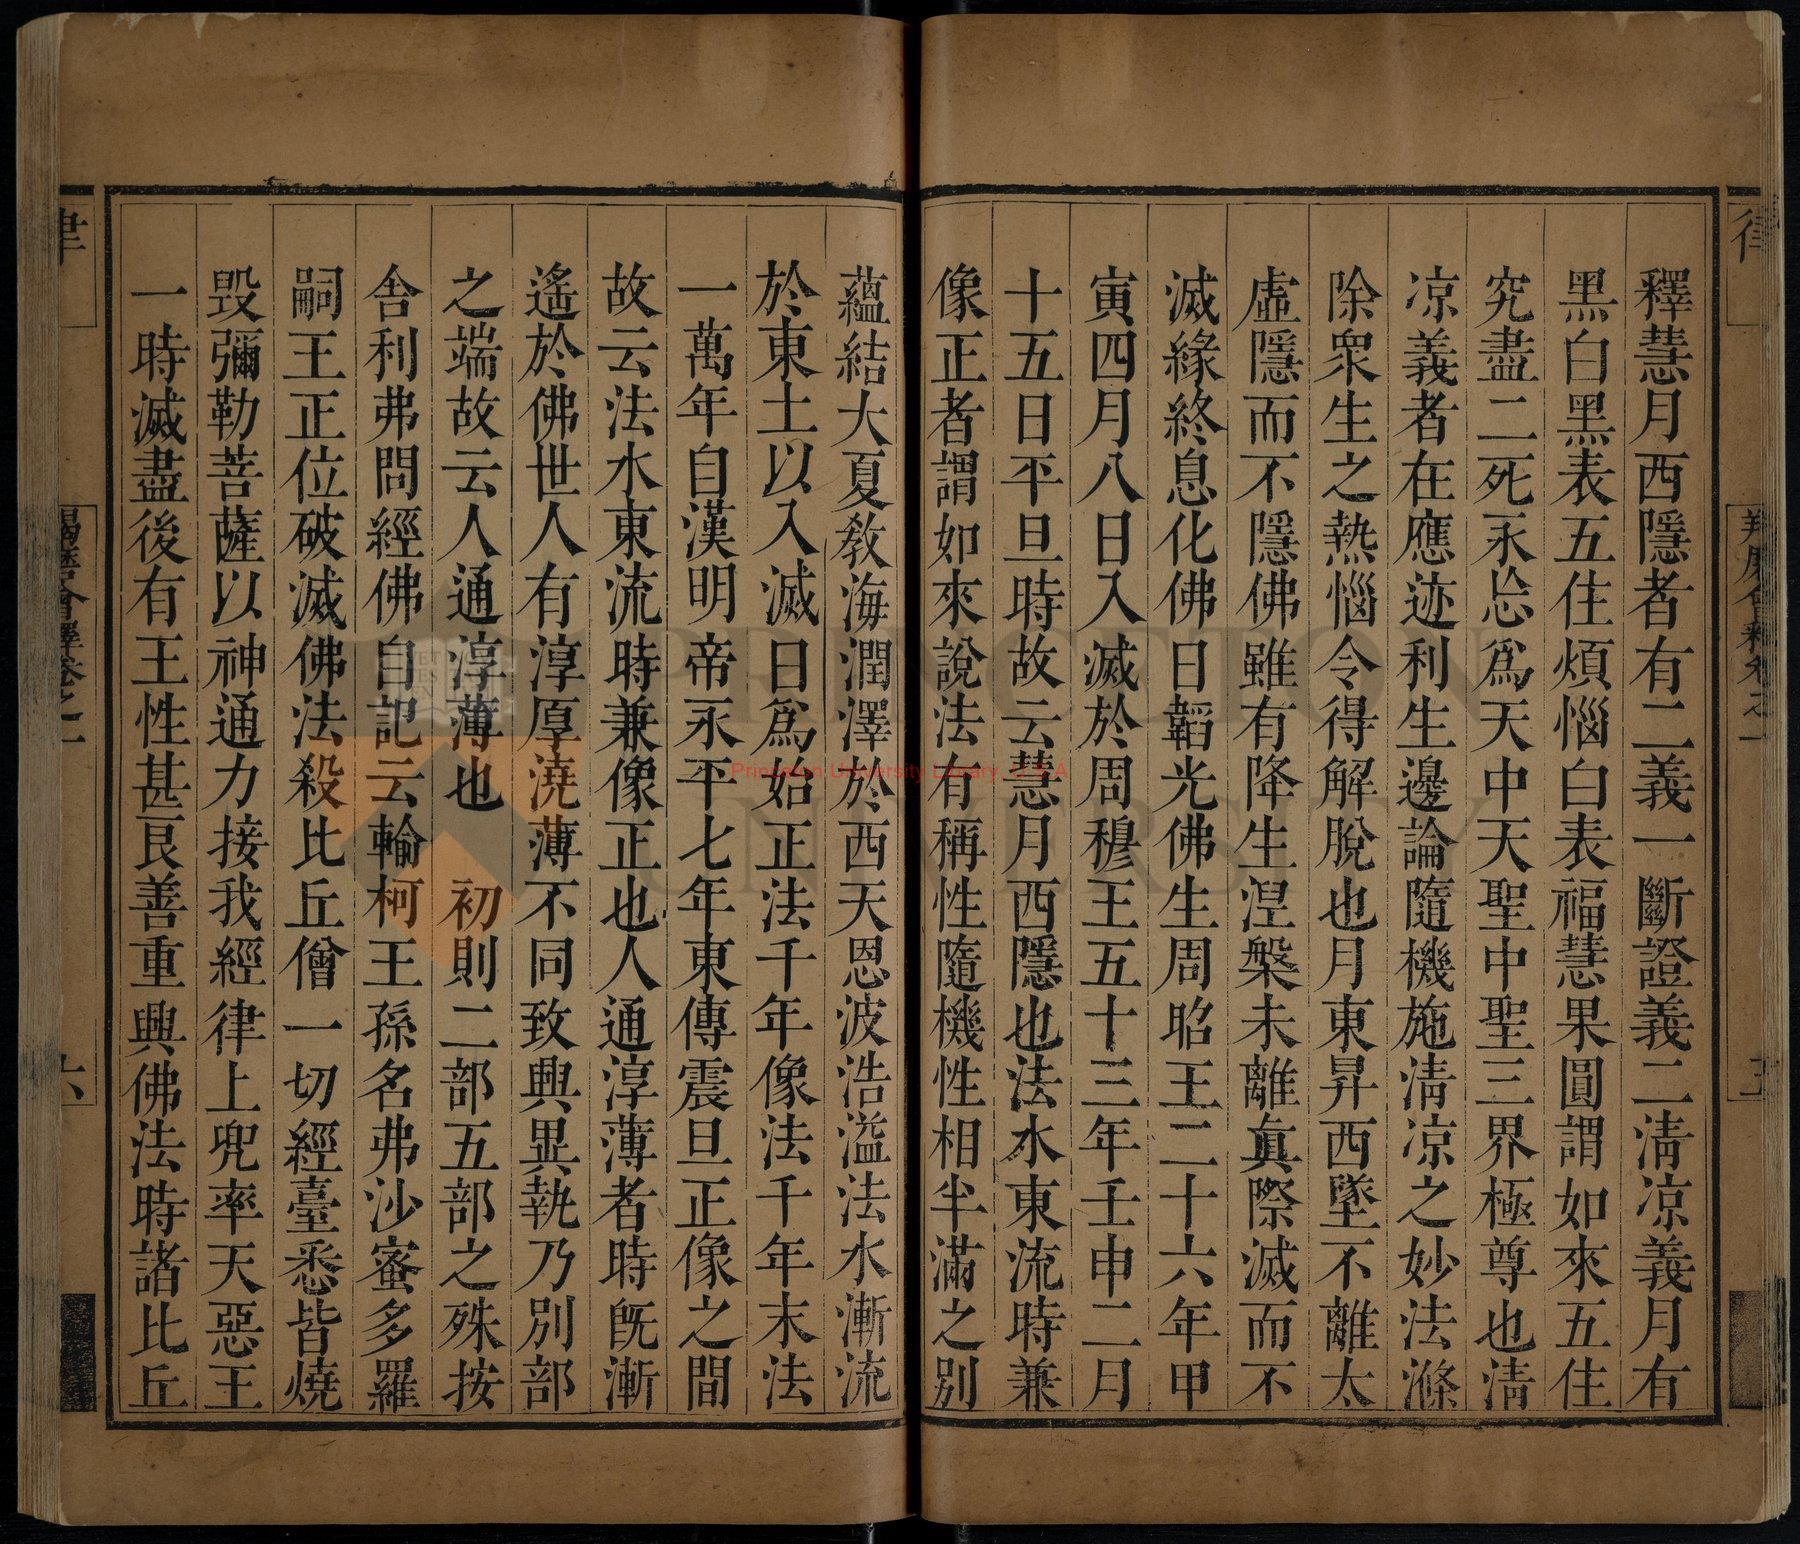 釋慧月西隱者有二義一斷證義二清凉義月有
黑白黑表五住煩惱白表福慧果圓謂如來五住
究盡二死永忩為天中天聖中聖三界極尊也清
凉義者在應迹利生邊論隨機施清凉之妙法滌
除衆生之熱惱令得解脫也月東昇西墜不離太
虛隱而不隱佛雖有降生涅槃未離眞際滅而不
滅緣終息化佛日韜光佛生周昭王二十六年甲
寅四月八日入滅於周穆王五十三年壬申二月
十五日平旦時故云慧月西隱也法水東流時兼
像正者謂如來說法有稱性隨機性相半滿之別
蘊結大夏教海潤澤於西天恩波浩溢法水漸流
於東土以入滅日爲始正法千年像法千年末法
一萬年自漢明帝永平七年東傳震旦正像之間
故云法水東流時兼像正也人通淳薄者時旣漸
遙於佛世人有淳厚澆薄不同致興異執乃別部
之端故云人通淳薄也 初則二部五部之殊按
舍利弗問經佛自記云輸柯王孫名弗沙蜜多羅
嗣王正位破滅佛法殺比丘僧一切經臺悉皆燒
毀彌勒菩薩以神通力接我經律上兜率天惡王
一時滅盡後有王性甚良善重興佛法時諸比丘
Princeton University Library, U S A
PRINCETON
UNIVERSITY